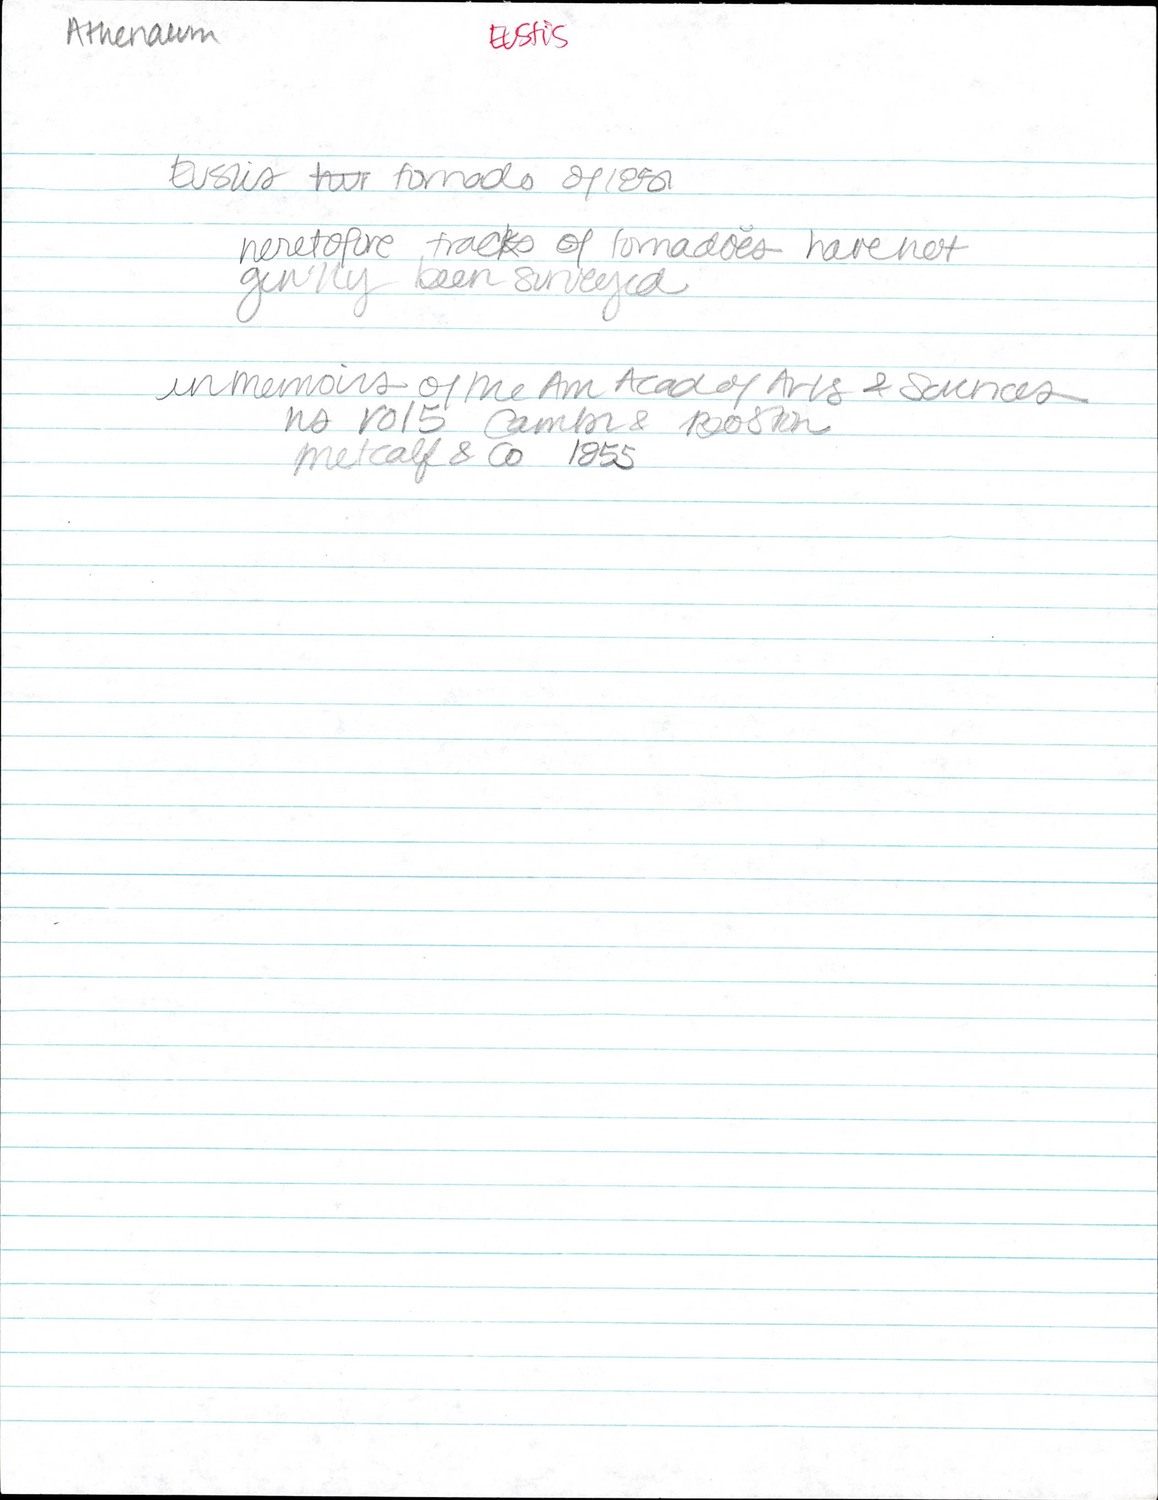 Athenaeum
Eustis
Eustis tour tornado of 1851
heretofore tracks of tornadoes have not
gen'lly been surveyed
in memoirs of the Am Acad of Arts & Sciences
ns vol 5 Cambr & Boston
metcalf & Co 1855